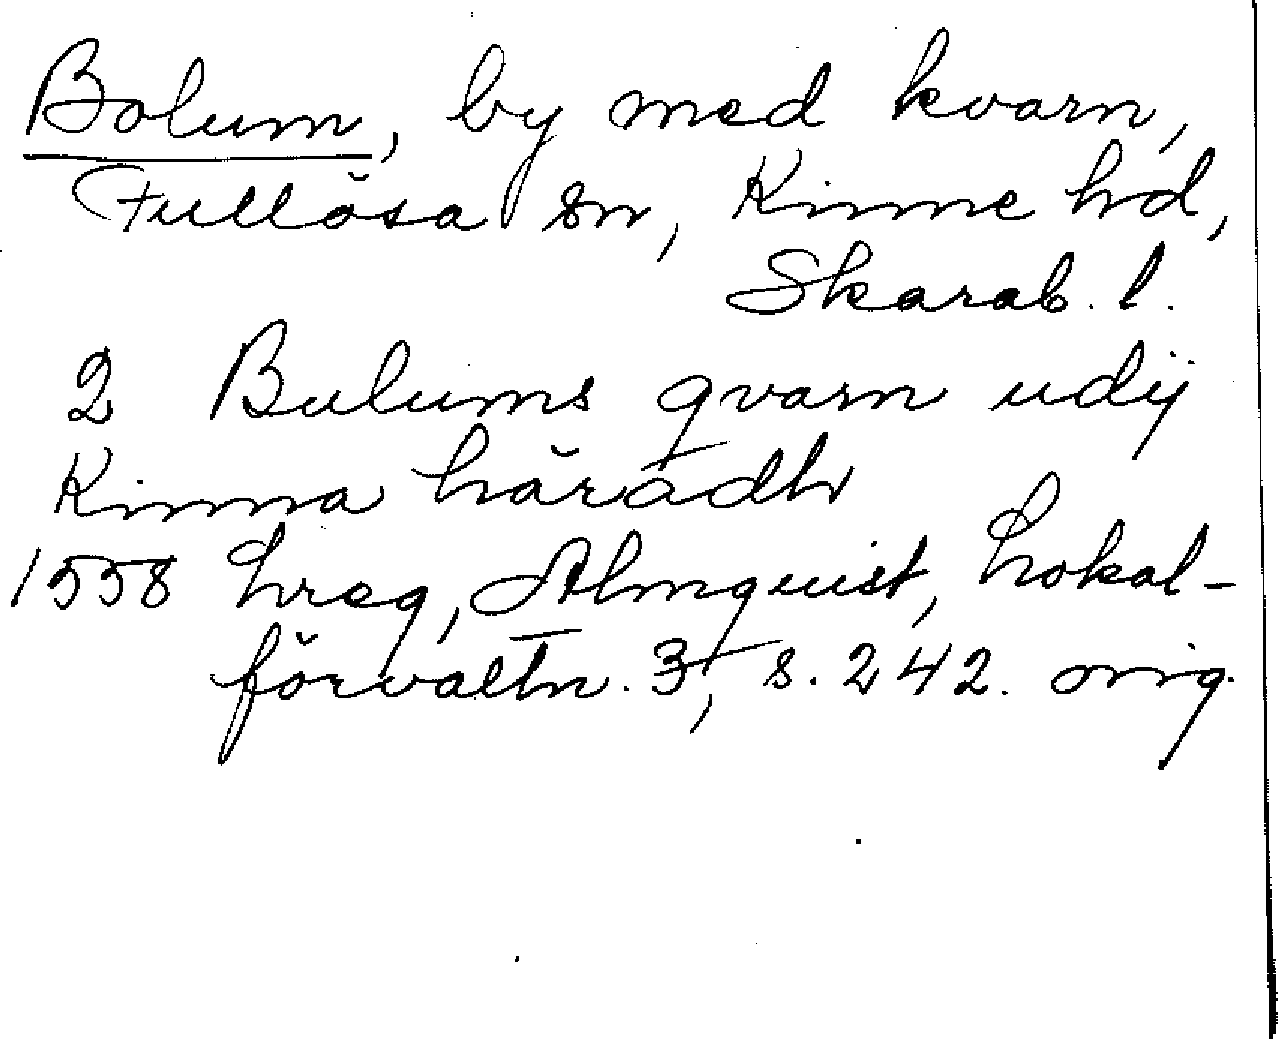 Bolum, by med kvarn,
Fullösa sn, Kinne hd,
Skarab. l.
2 Bulums qvarn udij
Kinna härädh
1558 hreg, Almquist, Lokal-
förvaltn. 3, s. 242. orig.